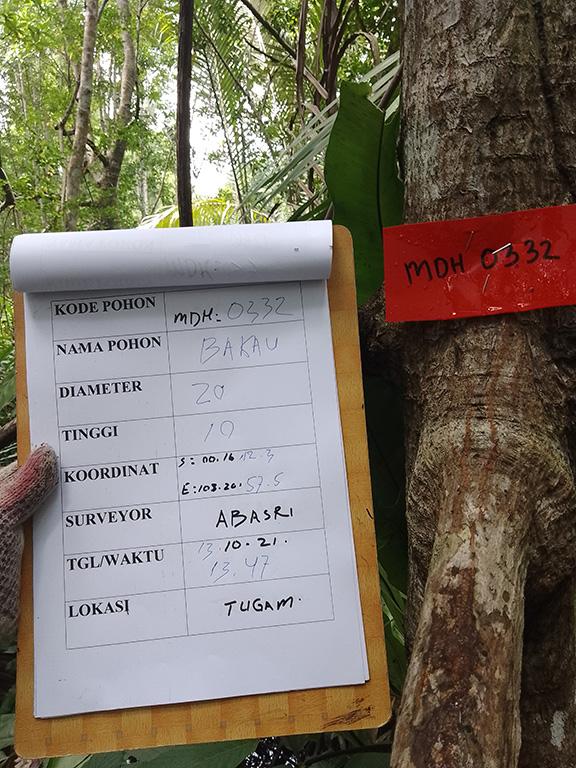 MDH 0332
KODE POHON MDH: 0332
NAMA POHON BAKAU
DIAMETER 20
TINGGI 10
KOORDINAT S: 00.16 12.3
E: 103.20. 57.5
SURVEYOR ABASRI
TGL/WAKTU 13.10.21.
13.47
LOKASI TUGAM.